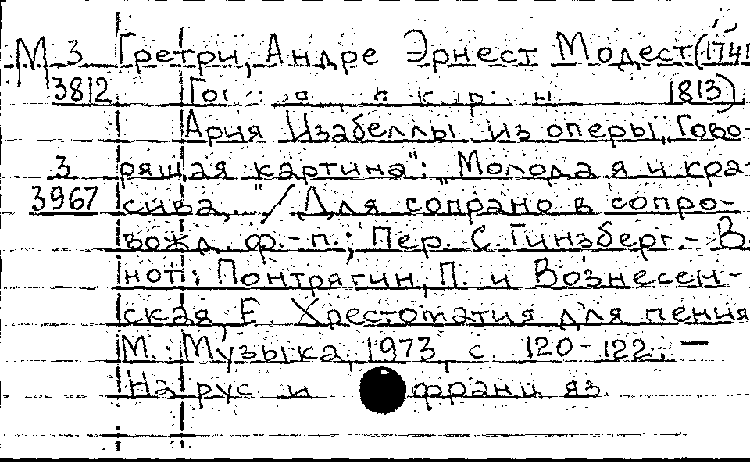 М 3 Гретри, Андре Эрнест Модест (1741
3812 1813)
Ария Изабеллы из оперы „Гово-
3 рящая картина": „Молода я и кра-
3967 сива,..." / Для сопрано в сопро-
вожд. ф.-п.; Пер. С. Гинзберг. - В
нот: Понтрягин, П. и Вознесен-
ская, Е. Хрестоматия для пения
М.: Музыка, 1973, с. 120-122. —
На рус и франц яз.